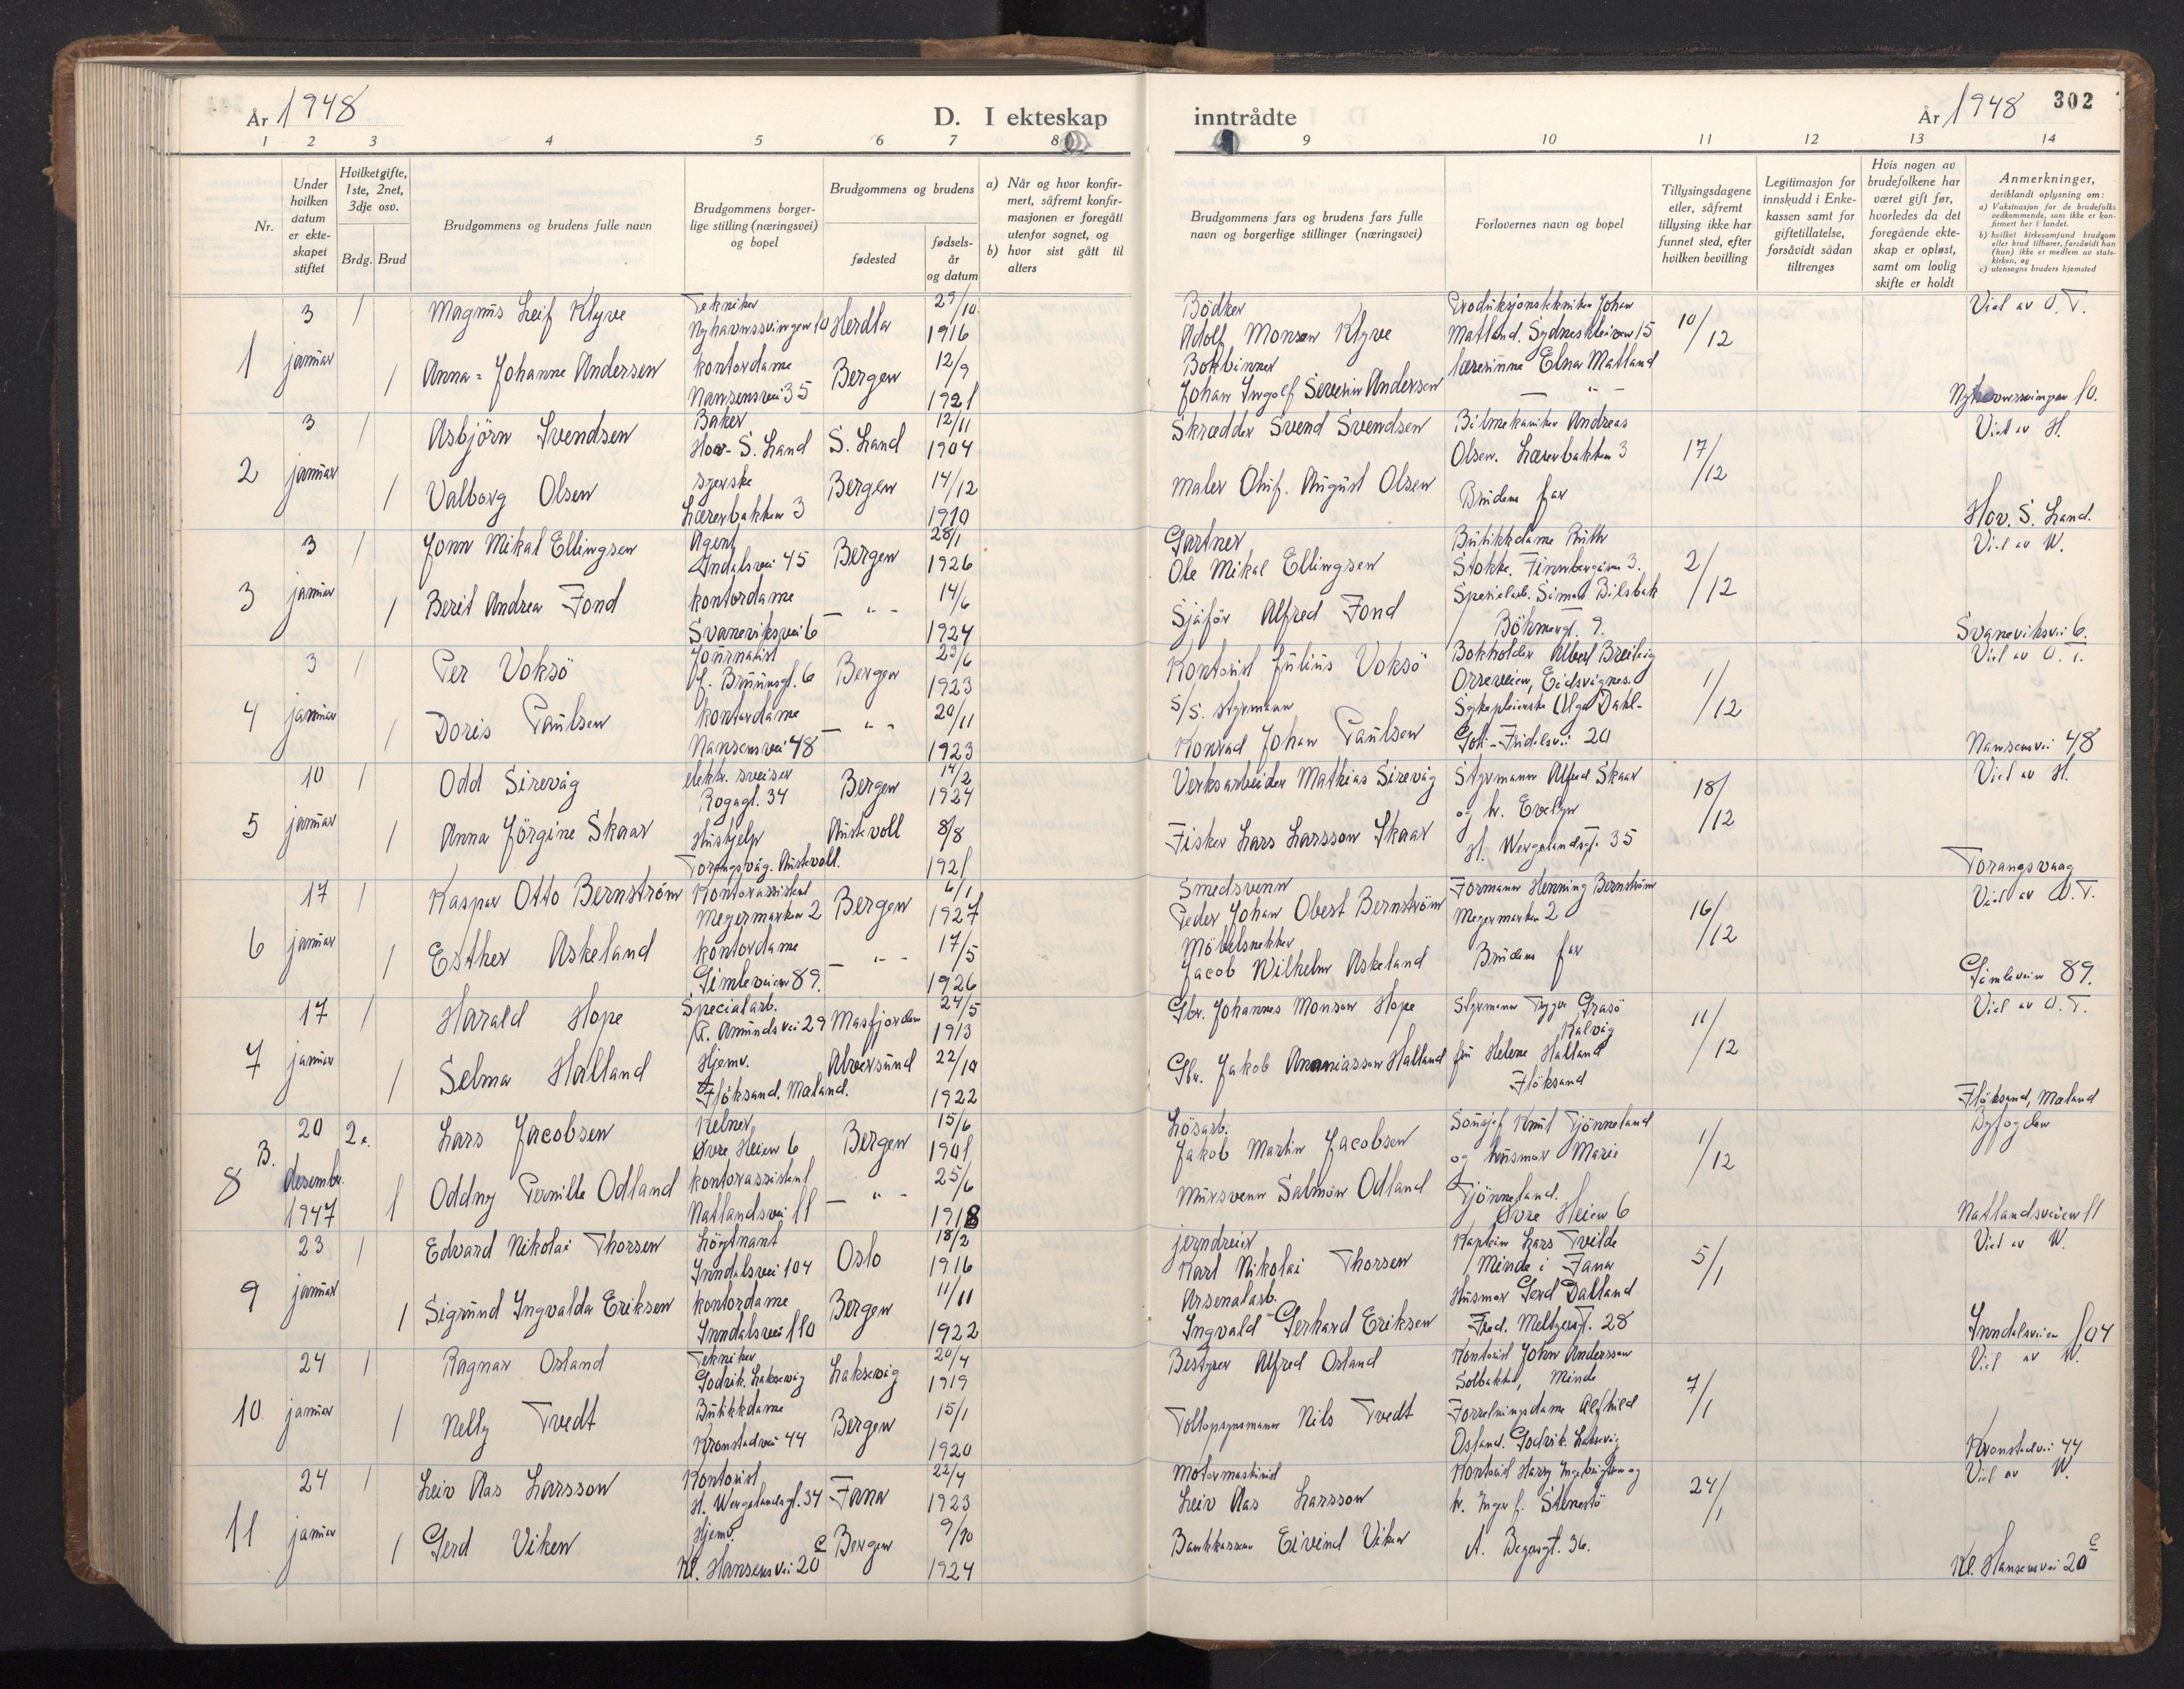 År 1948
D. I ekteskap
inntrådte
År 1948
302
1 2 3 4 5 6 7 8
9 10 11 12 13 14
Nr.
Under hvilken datum er ekte-skapet stiftet
Hvilket gifte, 1ste, 2net, 3dje osv.
Brdg. Brud
Brudgommens og brudens fulle navn
Brudgommens borger-lige stilling (næringsvei) og bopel
Brudgommens og brudens
fødested
fødsels-år og datum
a) Når og hvor konfir-mert, såfremt konfir-masjonen er foregått utenfor sognet, og
b) hvor sist gått til alters
Brudgommens fars og brudens fars fulle navn og borgerlige stillinger (næringsvei)
Forlovernes navn og bopel
Tillysingsdagene eller, såfremt tillysing ikke har funnet sted, efter hvilken bevilling
Legitimasjon for innskudd i Enke-kassen samt for giftetillatelse, forsåvidt sådan tiltrenges
Hvis nogen av brudefolkene har været gift før, hvorledes da det foregående ekte-skap er opløst, samt om lovlig skifte er holdt
Anmerkninger, deriblandt oplysning om:
a) Vaksinasjon for de brudefolks vedkommende, som ikke er kon-firmert her i landet.
b) hvilket kirkesamfund brudgom eller brud tilhører, forsåvidt han (hun) ikke er medlem av stats-kirken, og
c) utensogns bruders hjemsted
1 3 januar 1 Magnus Leif Klyve Tekniker Nyhavnssvingen 10 Herdla 29/10 1916 Bödker Adolf Monsen Klyve Produksjonstekniker Johan Matland. Sydneskleiven 15 10/12 Viet av O. T.
1 Anna-Johanne Andersen kontordame Nansensvei 35 Bergen 12/9 1921 Bokbinner Johan Ingolf Severin Andersen lærerinne Elna Matland — " — Nyhavnssvingen 10.
2 3 januar 1 Asbjörn Svendsen Baker Hov - S. Land S. Land 12/11 1904 Skrædder Svend Svendsen Bilmekaniker Andreas Olsen. Lærerbakken 3 17/12 Viet av H.
1 Valborg Olsen syerske Lærerbakken 3 Bergen 14/12 1910 Maler Oluf. August Olsen Brudens far Hov. S. Land.
3 3 januar 1 Jonn Mikal Ellingsen Agent Indalsvei 45 Bergen 28/1 1926 Gartner Ole Mikal Ellingsen Butikkdame Ruth Stokke. Finnbergåsen 3. 2/12 Viet av W.
1 Berit Andrea Fond kontordame Svaneviksvei 6 — " — 14/6 1924 Sjåför Alfred Fond Spesialarb. Simon Bilsbak Böhmergt. 9. Svaneviksvei 6.
4 3 januar 1 Per Voksö Journalist f. Bruunsgt. 6 Bergen 23/6 1923 Kontorist Julius Voksö Bokholder Albert Breivig Orreveien, Eidsvågnes. 1/12 Viet av O. T.
1 Doris Paulsen kontordame Nansensvei 48 — " — 20/11 1923 S/S. styrmann Konrad Johan Paulsen Sykepleierske Olga Dahl- Goli- Fridalsvei 20 Nansensvei 48
5 10 januar 1 Odd Sirevåg elektr. sveiser Rogagt. 34 Bergen 14/2 1924 Verksarbeider Mathias Sirevåg Styrmann Alfred Skaar og hr. Evelyn H. Wergelandsgt. 35 18/12 Viet av H.
1 Anna Jörgine Skaar Hushjelp Torangsvåg. Austevoll. Austevoll 8/8 1921 Fisker Lars Larsson Skaar Torangsvaag
6 17 januar 1 Kaspar Otto Bernström Kontorassistent Meyermarken 2 Bergen 6/1 1927 Smedsvenn Peder Johan Obert Bernström Formann Henning Bernström Meyermarken 2 16/12 Viet av O. T.
1 Esther Askeland kontordame Gimleveien 89. — " — 17/5 1926 Möbelsnekker Jacob Wilhelm Askeland Brudens far Gimleveien 89.
7 17 januar 1 Harald Hope Specialarb. R. Amundsvei 29 Masfjorden 24/5 1913 Gbr. Johannes Monsen Hope Styrmann Trygve Grasö Kalvåg 11/12 Viet av O. T.
1 Selma Halland Hjemv. Flöksand. Meland. Alversund 22/10 1922 Gbr. Jakob Ananiassen Halland fru Helene Halland Flöksand Flöksand, Meland
8 B. 20 desember 1947 2. Lars Jacobsen Kelner Øvre Heien 6 Bergen 15/6 1901 Lösarb. Jakob Martin Jacobsen Sousjef Knut Tjönneland og husmor Marie Tjönneland. Øvre Heien 6 1/12 Byfogden
1 Oddny Pernille Odland kontorassistent Natlandsvei 11 — " — 25/6 1918 Mursvenn Salmon Odland Natlandsveien 11
9 23 januar 1 Edvard Nikolai Thorsen Löytnant Inndalsvei 104 Oslo 18/2 1916 jerndreier Karl Nikolai Thorsen Kaptein Lars Tveide Minde i Fana 5/1 Viet av W.
1 Sigrund Ingvalda Eriksen kontordame Inndalsvei 110 Bergen 11/11 1922 Arsenalarb. Ingvald Gerhard Eriksen Husmor Gerd Dalland Fred. Meltzersgt. 28 Inndalsveien 104
10 24 januar 1 Ragnar Osland Tekniker Godvik. Laksevåg Laksevåg 20/4 1919 Bestyrer Alfred Osland Kontorist John Anderssen Solbakken, Minde 7/1 Viet av W.
1 Nelly Tvedt Butikkdame Kronstadvei 44 Bergen 15/1 1920 Tollopsynsmann Nils Tvedt Forretningsdame Alfhild Osland. Godvik. Laksevåg Kronstadvei 44
11 24 januar 1 Leiv Aas Larsson Kontorist H. Wergelandsgt. 34 Fana 22/4 1923 Motormaskinist Leiv Aas Larsson Kontorist Harry Ingebrigtsen og h. Inger f. Stenestö 24/1 Viet av W.
1 Gerd Viken Hjemv. Kl. Hansens vei 20 c Bergen 9/10 1924 Bankkasserer Eivind Viken A. Beyersgt. 36. Kl. Hansens vei 20 c